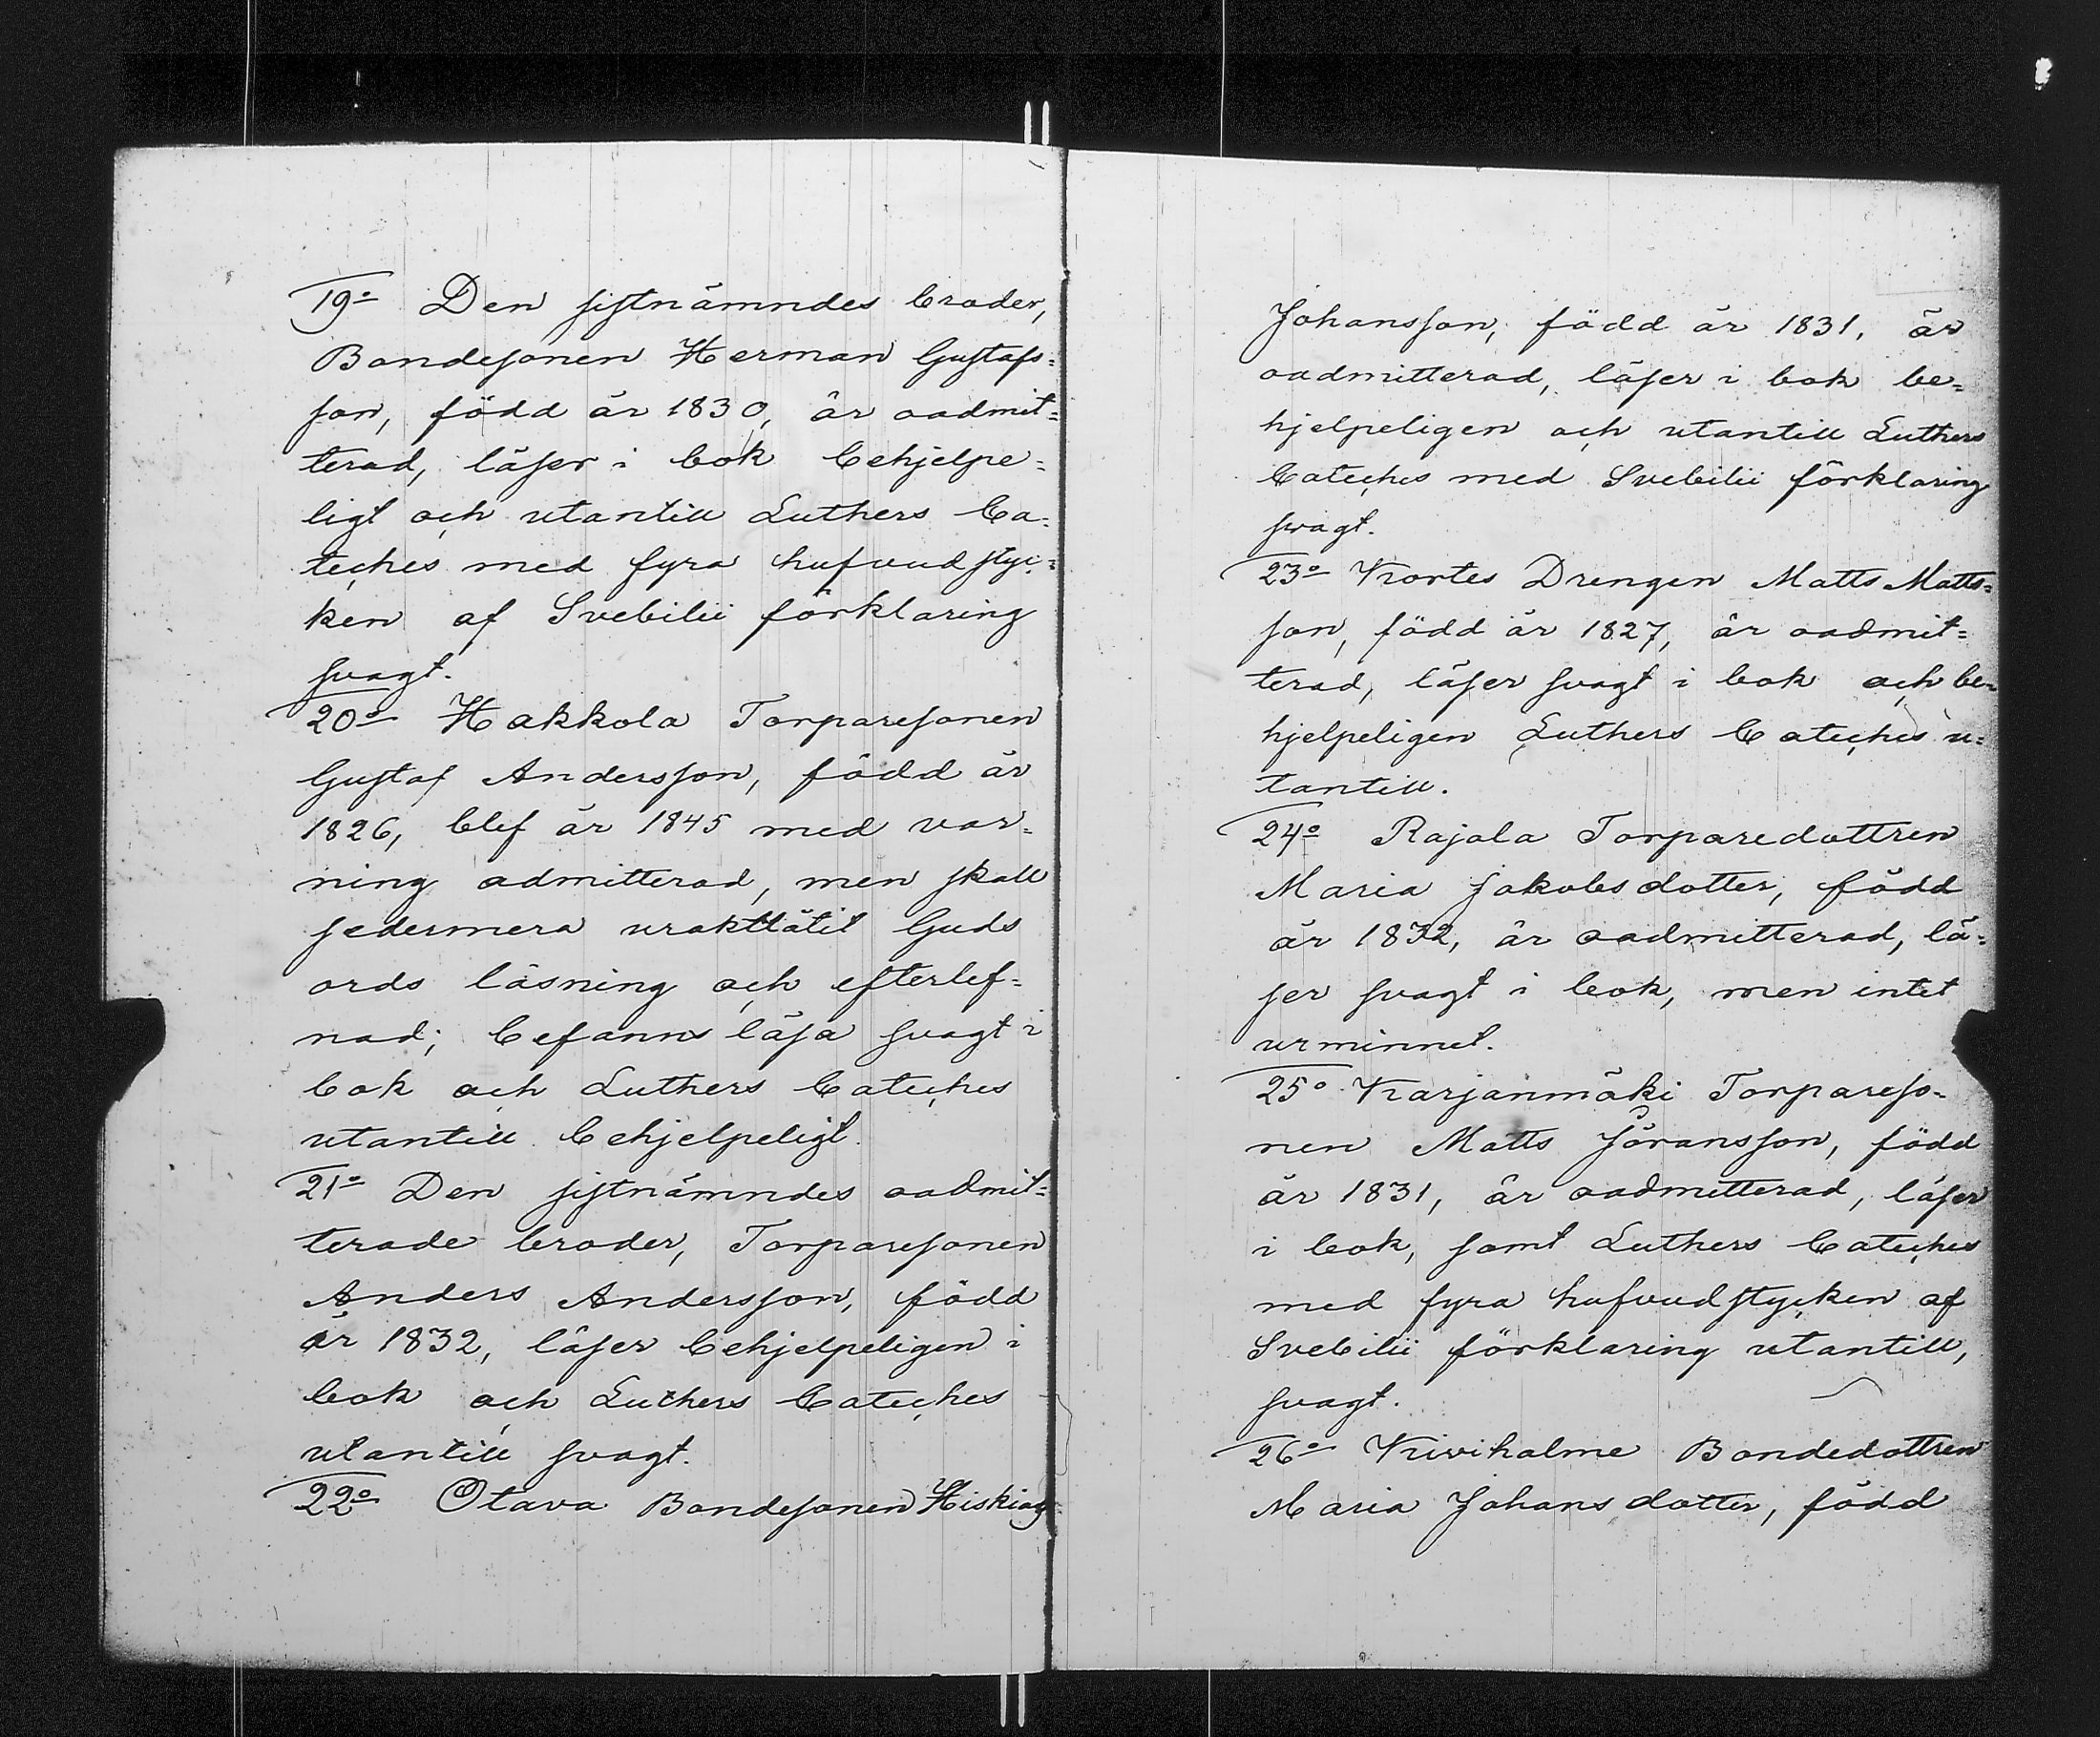 19:o Den sistnämndes broder,
Bondesonen Herman Gustafs=
son, född år 1830, är oadmit=
terad, läser i bok behjelpe=
ligt och utantill Luthers Ca=
teches med fyra hufvudstyc=
ken af Svebilii förklaring
svagt.
20:o Hakkola Torparesonen
Gustaf Andersson, född år
1826, blef år 1845 med var=
ning admitterad, men skall
sedermera uraktlåtit Guds
ords läsning och efterlef=
nad; befanns läsa svagt i
bok och Luthers Cateches
utantill behjelpeligt.
21:o Den sistnämndes oadmit=
terade broder, Torparesonen
Anders Andersson, född
år 1832, läser behjelpeligen i
bok och Luthers Cateches
utantill svagt.
22:o Otava Bondesonen Hiskias
Johansson, född år 1831, är
oadmitterad, läser i bok be=
hjelpeligen och utantill Luthers
Cateches med Svebilii förklaring
svagt.
23:o Kortes Drengen Matts Matts=
son, född år 1827, är oadmit=
terad, läser svagt i bok och be=
hjelpeligen Luthers Cateches u=
tantill.
24:o Rajala Torparedottren
Maria Jakobsdotter, född
år 1832, är oadmitterad, lä=
ser svagt i bok, men intet
ur minnet.
25:o Karjanmäki Torpareso=
nen Matts Jöransson, född
år 1831, är oadmitterad, läser
i bok, samt Luthers Cateches
med fyra hufvudstycken af
Svebilii förklaring utantill,
svagt.
26:o Kiviholme Bondedottren
Maria Johansdotter, född